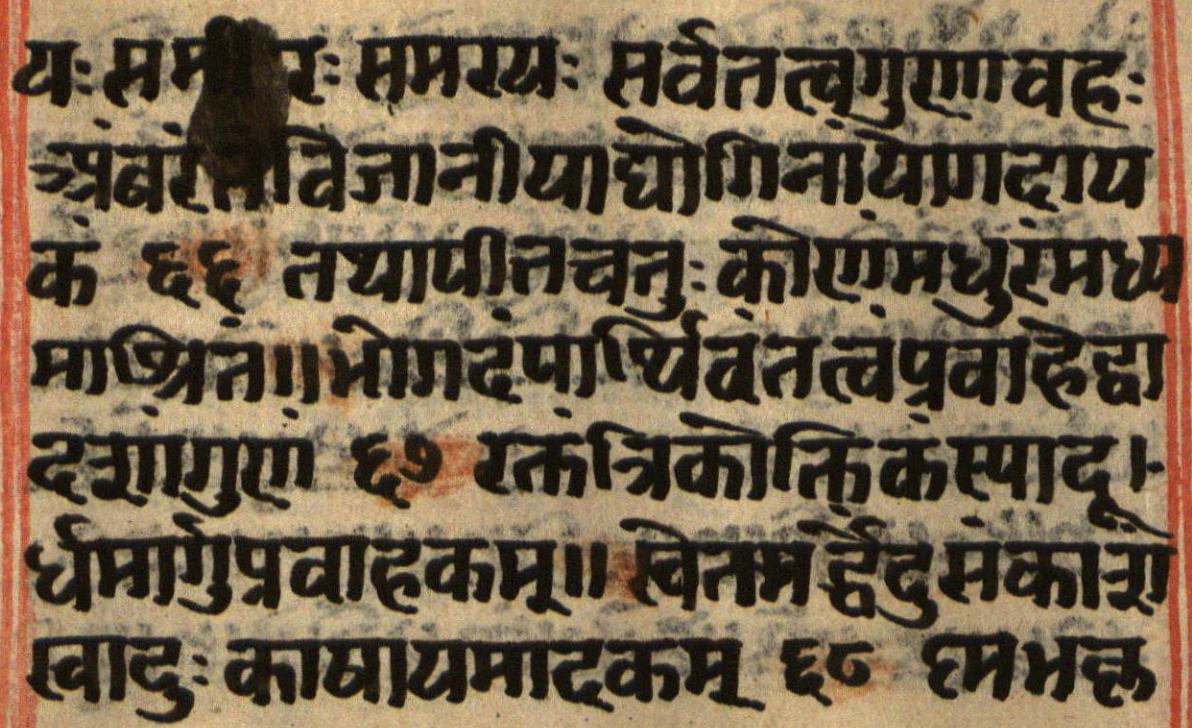 यः सम रः समरयः सर्वतत्वगुणावहः
अंबरं तं विजानीयाद्योगिनां योगदाय
कं ६६ तथा पीतचतुःकोणं मधुरं मध्य
माश्रितं॥ भोगदं पार्थिवं तत्वं प्रवाहे द्वा
दशांगुणं ६७ रक्तत्रिकोक्तिकं स्पादू।-
र्धमार्गुप्रवाहकम्॥ स्वेतमर्द्धेंदुसंकाशं
स्वादुः काषायमादकम् ६८